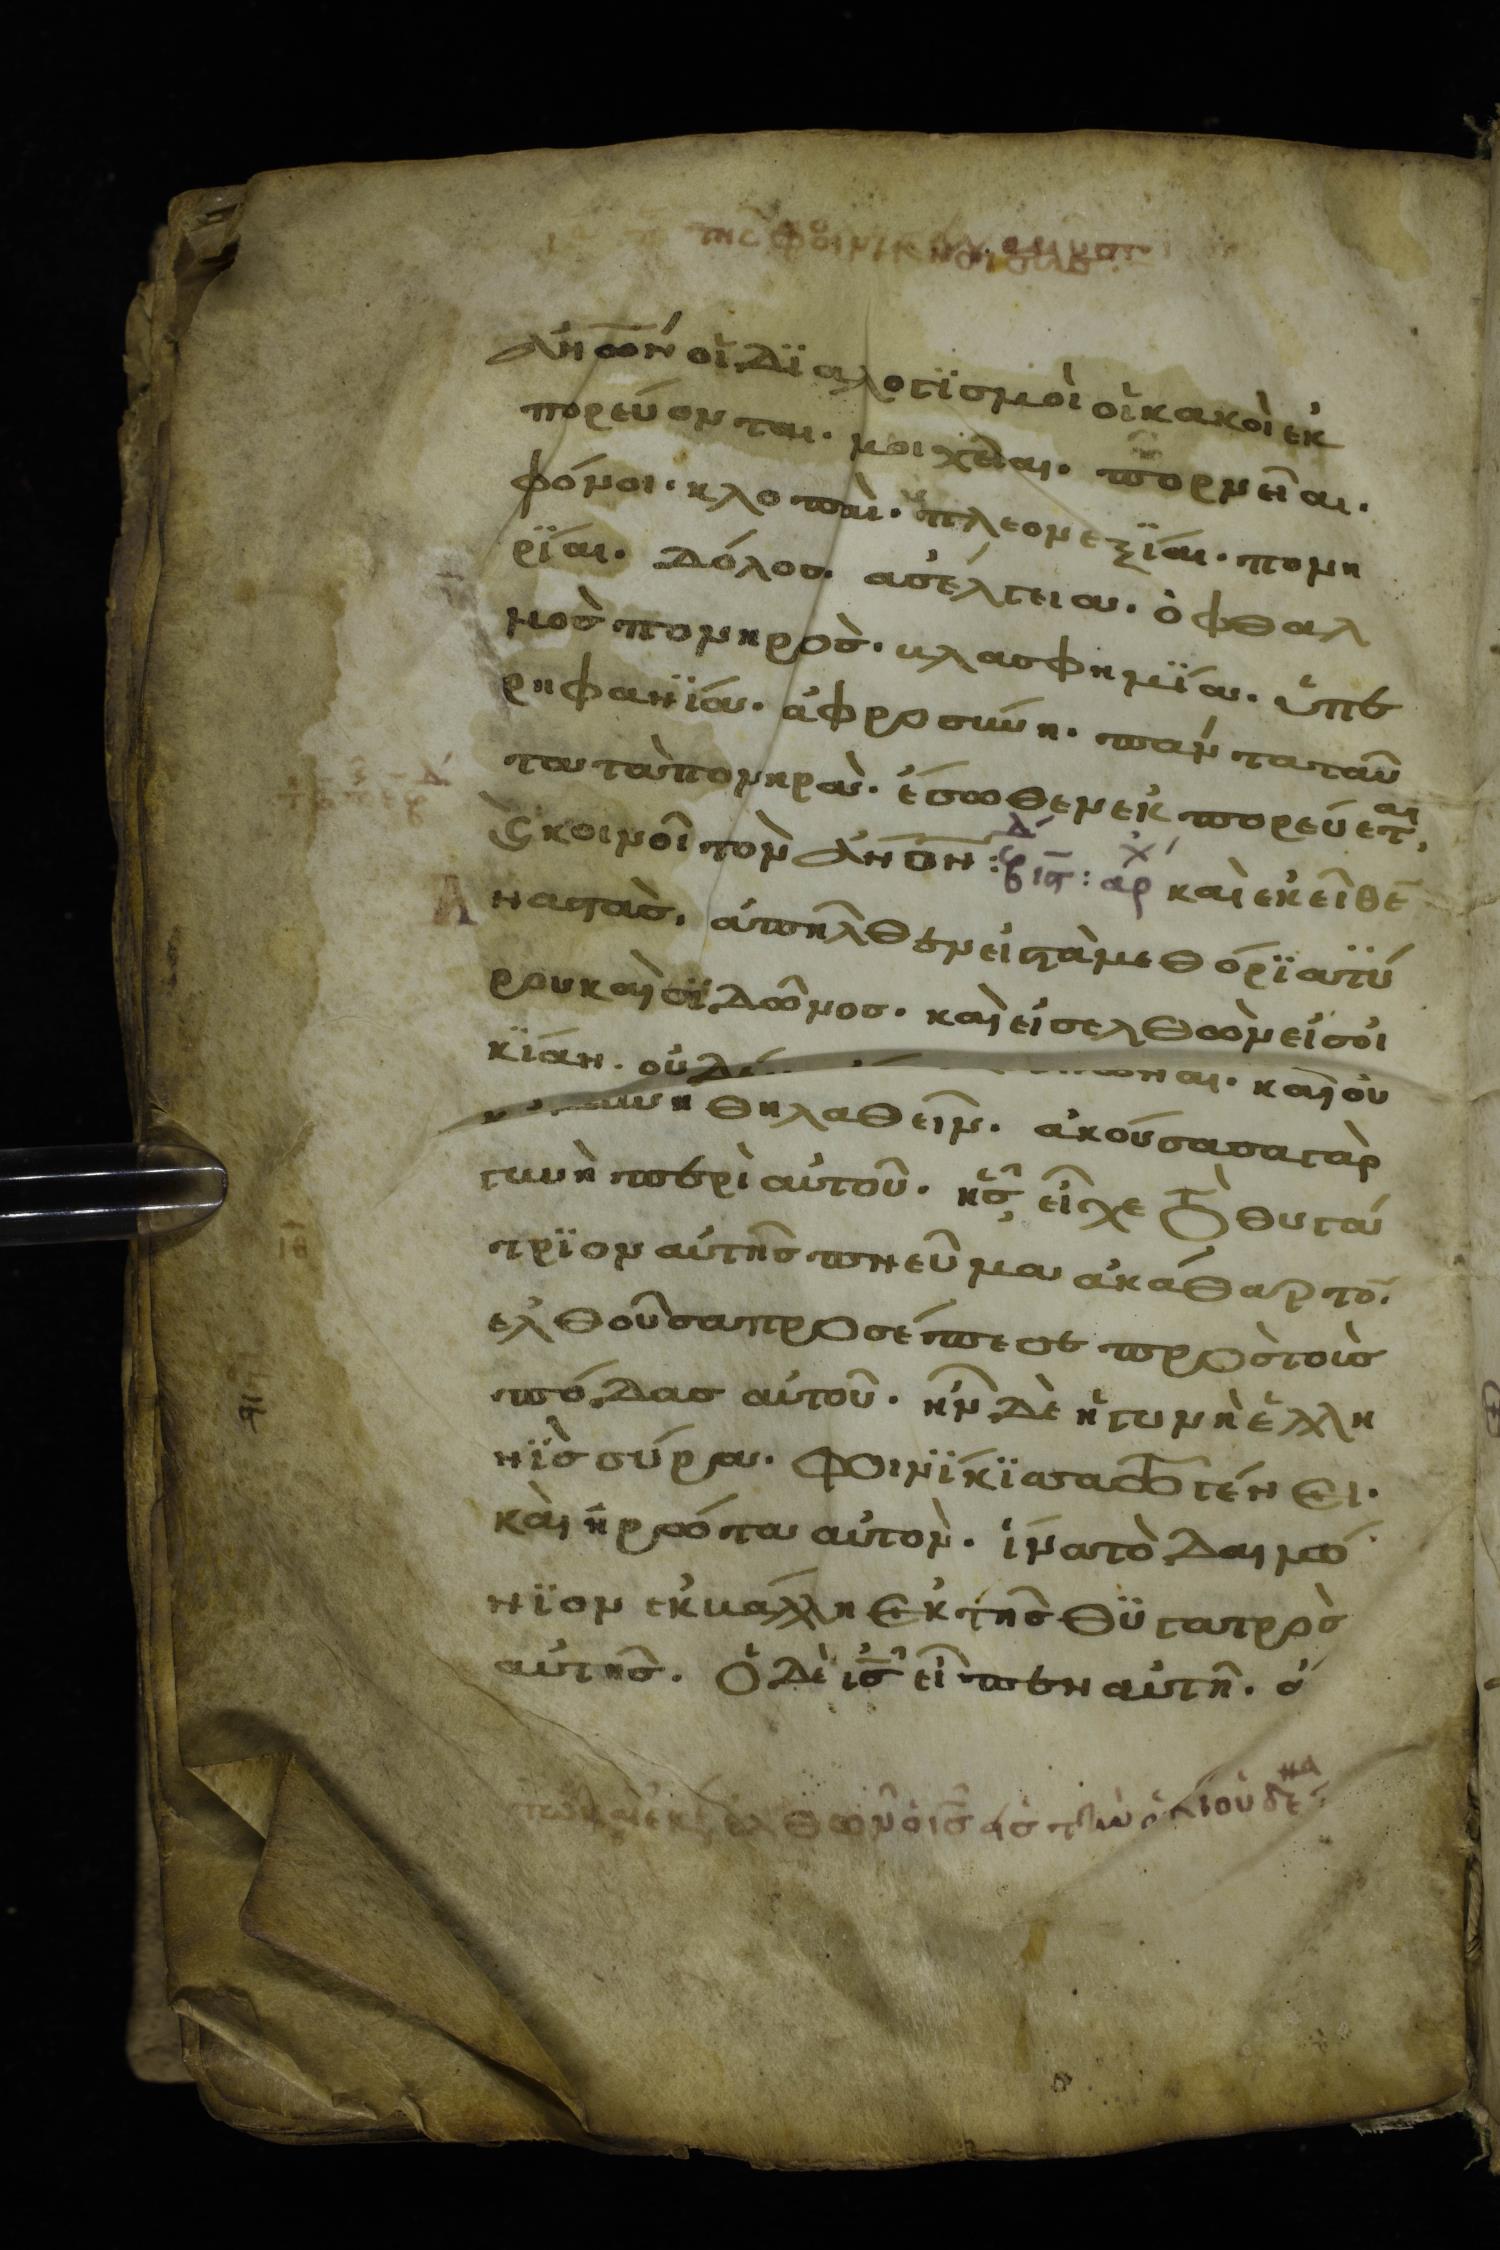 τῆς φοινικ
ἀν̅ω̅ν̅ οἱ διαλογϊσμοὶ οἱ κακοὶ ἐκ
πορεύονται. μοιχεῖαι. πορνεῖαι.
φόνοι. κλοπαὶ. πλεονεξΐαι. πονη
ρΐαι. δόλος. ἀσέλγεια. ὀφθαλ
μὸς πονηρὸς. βλασφημΐα. ὑπε
ρηφανΐα. ἀφροσύνη. πάντα ταῦ
τα τὰ πονηρὰ. ἔσωθεν ἐκπορεύεται,
Ϛ κοινοῖ τὸν ἀν̅ο̅ν̅: ιϛ: ἀρχ καὶ ἐκεῖθε̅
Α ναστὰς. ἀπῆλθεν εἰς τὰ μεθόρϊα τύ
ρου καὶ σϊδῶνος. καὶ εἰσελθὼν εἰς οἰ
κΐαν. οὐδέ ναι. καὶ οὐ
νήθη λαθεῖν. ἀκούσασα γὰρ
γυνὴ περὶ αὐτοῦ. ἧς εἶχε τὸ θυγά
τρϊον αὐτῆς πνεῦμα ἀκάθαρτο̅.
ἐλθοῦσα προσέπεσε πρὸς τοὺς
πόδας αὐτοῦ. ἦν δὲ ἡ γυνὴ ἑλλη
νϊς σύρα. φοινΐκϊσσα τῶ γένει.
καὶ ἠρώτα αὐτὸν. ἵνα τὸ δαιμό
νϊον ἐκβάλλη ἐκ τῆς θϋγατρὸς
αὐτῆς. ὁ δὲ ι̅ς̅ εἶπεν αὐτῆ. ἄ
ἐξελθὼν ὁ ι̅ς̅